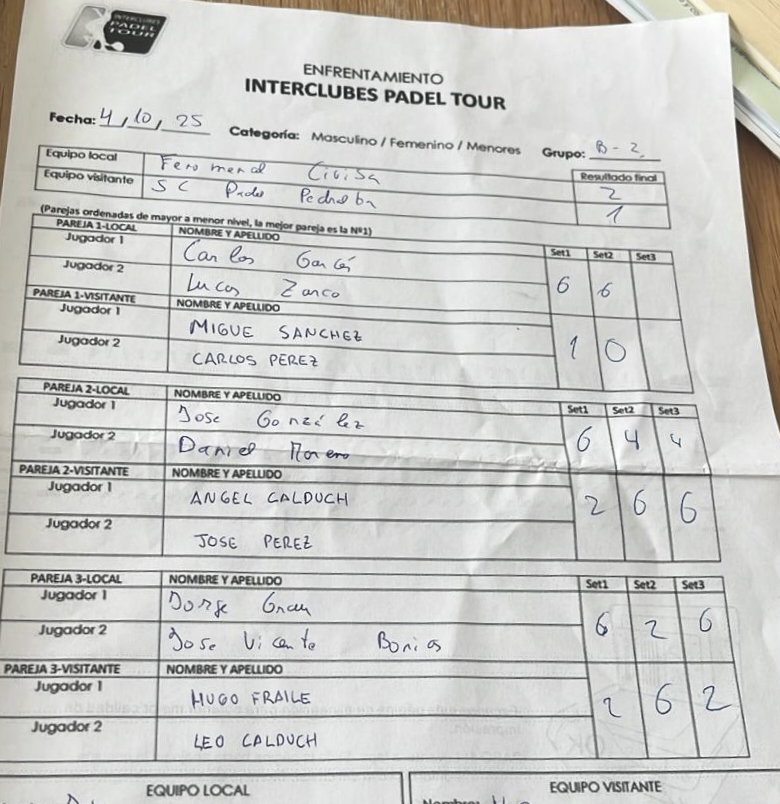 INTERCLUBES
PADEL
TOUR
ENFRENTAMIENTO
INTERCLUBES PADEL TOUR
Fecha: 4, 10, 25 Categoría: Masculino / Femenino / Menores Grupo: B-2
Equipo local Feromenal Civisa Resultado final
2
Equipo visitante SC Padel Pedralba 1
(Parejas ordenadas de mayor a menor nivel, la mejor pareja es la Nº1)
PAREJA 1-LOCAL NOMBRE Y APELLIDO Set1 Set2 Set3
Jugador 1 Carlos Garcés
Jugador 2 Lucas Zarco 6 6
PAREJA 1-VISITANTE NOMBRE Y APELLIDO
Jugador 1 MIGUE SANCHEZ
Jugador 2 CARLOS PEREZ 1 0
PAREJA 2-LOCAL NOMBRE Y APELLIDO Set1 Set2 Set3
Jugador 1 Jose González
Jugador 2 Daniel Moreno 6 4 4
PAREJA 2-VISITANTE NOMBRE Y APELLIDO
Jugador 1 ANGEL CALDUCH 2 6 6
Jugador 2 JOSE PEREZ
PAREJA 3-LOCAL NOMBRE Y APELLIDO Set1 Set2 Set3
Jugador 1 Jorge Grau
Jugador 2 Jose Vicente 6 2 6
PAREJA 3-VISITANTE NOMBRE Y APELLIDO
Jugador 1 HUGO FRAILE 2 6 2
Jugador 2 LEO CALDUCH
EQUIPO LOCAL EQUIPO VISITANTE